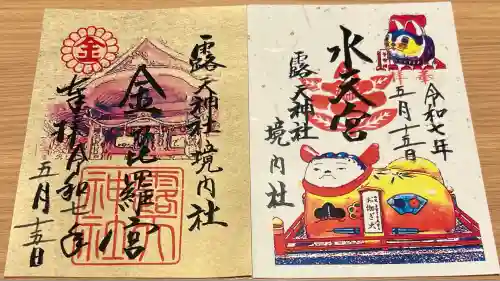 露天神社境内社
金
金毘羅宮
吉祥
令和七年
五月十五日
露天神社
奉拝
令和七年
五月十五日
水天宮
露天神社
境内社